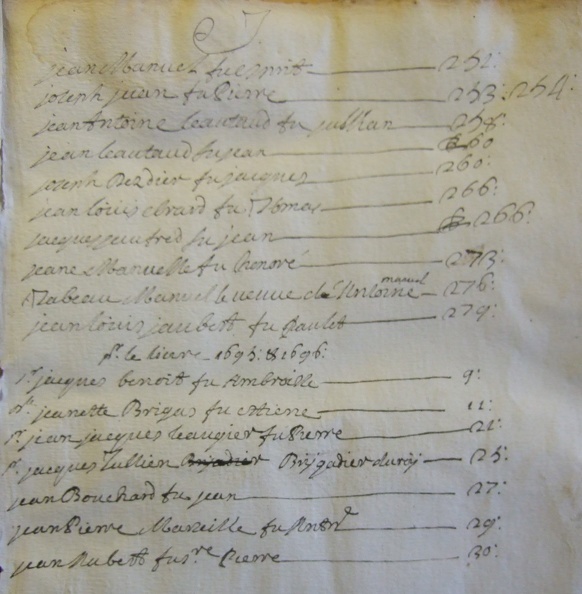 J
jean Manuel fu esprit 252:
joseph juan fu Pierre 253: 254:
jean Antoine leautaud fu jullian 258:
jean leautaud fu jean 260
joseph Dezdier fu jacques 260:
jean louis ebrard fu Thomas 266:
jacques jaufred fu jean 266:
jeane Manuelle fu honoré 273:
Izabeau Manuel le veuve de Antoine manuel 276:
jean louis jaubert fu paulet 279:
pr. le livre 1695: & 1696:
sr. jacques benoit fu Ambroise 9:
jeanette Brigas fu etiene 11:
sr. jean jacques Leaugier fu Pierre 21:
sr. jacques Jullien Brigadier du roj 25:
jean Bouchard fu jean 27:
jean Pierre Marseille fu Antne 29:
jean Aubert fu Pierre 30: